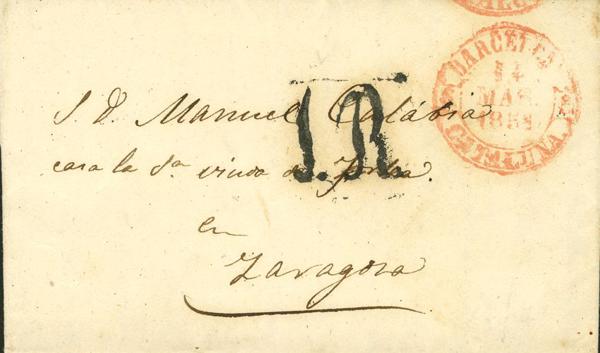 BARCELONA
14
MAR
CATALUÑA
1R
S. D. Manuel Calábia
casa la Sª viuda de
en
Zaragoza